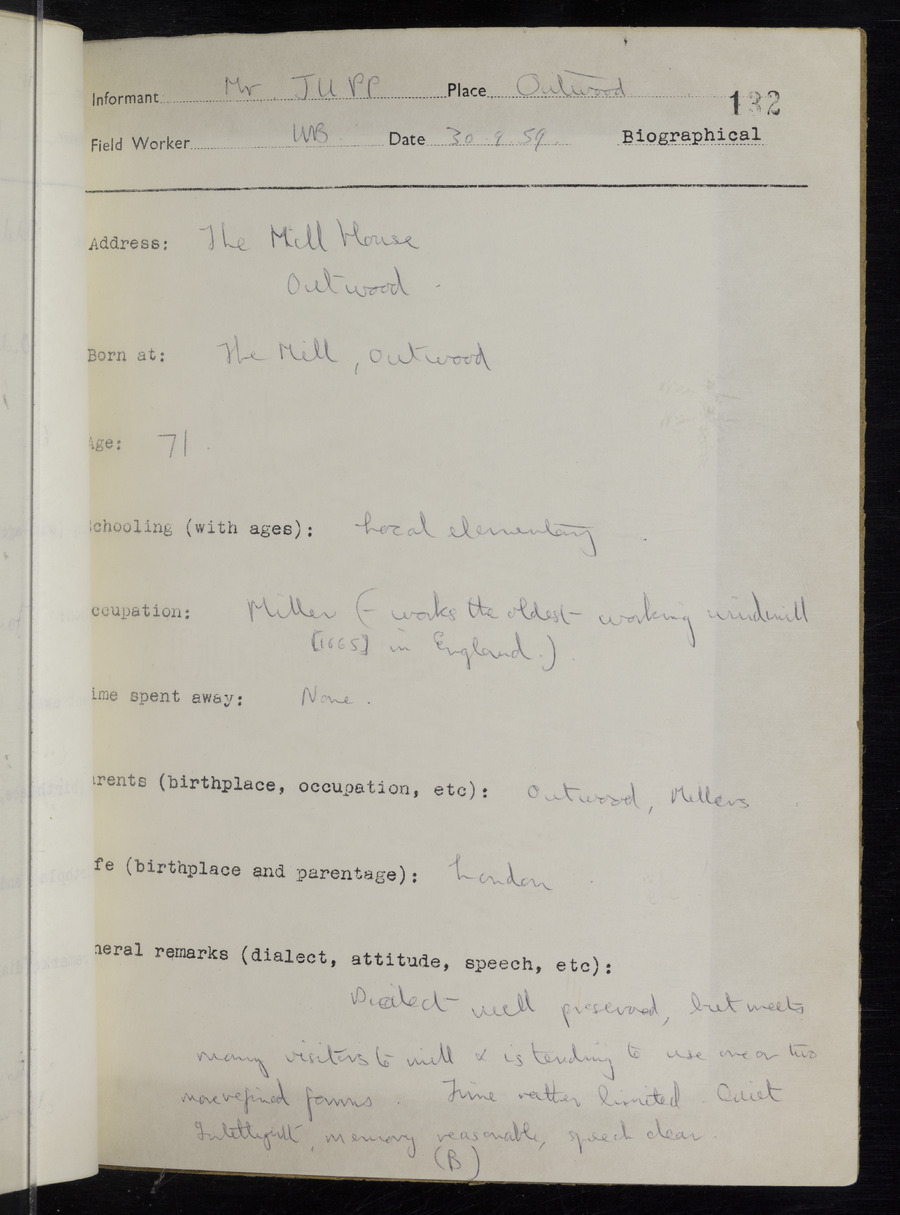 Informant Mr JUPP Place Outwood 132
Field Worker WB. Date 30.9.59. Biographical
Address: The Mill House
Outwood.
Born at: The Mill, Outwood
Age: 71.
chooling (with ages): Local elementary.
ccupation: Miller (- works the oldest working windmill
[1665] in England.)
ime spent away: None.
rents (birthplace, occupation, etc): Outwood, Millers
fe (birthplace and parentage): London.
neral remarks (dialect, attitude, speech, etc):
Dialect well preserved, but meets
many visitors to mill & is tending to use one or two
more refined forms. Time rather limited. Quiet
Intelligent, memory reasonable, speech clear.
(B)